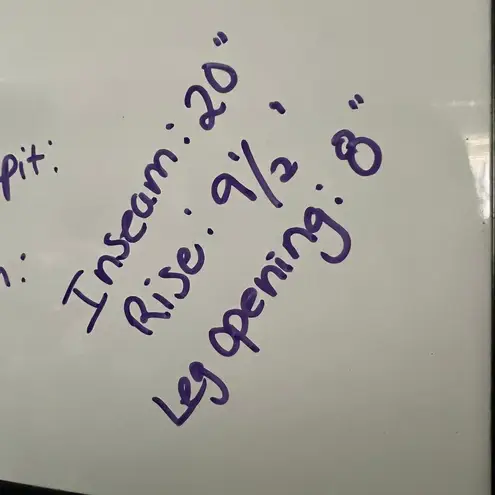 pit:
Inseam: 20"
Rise: 9 1/2 '
Leg opening: 8"